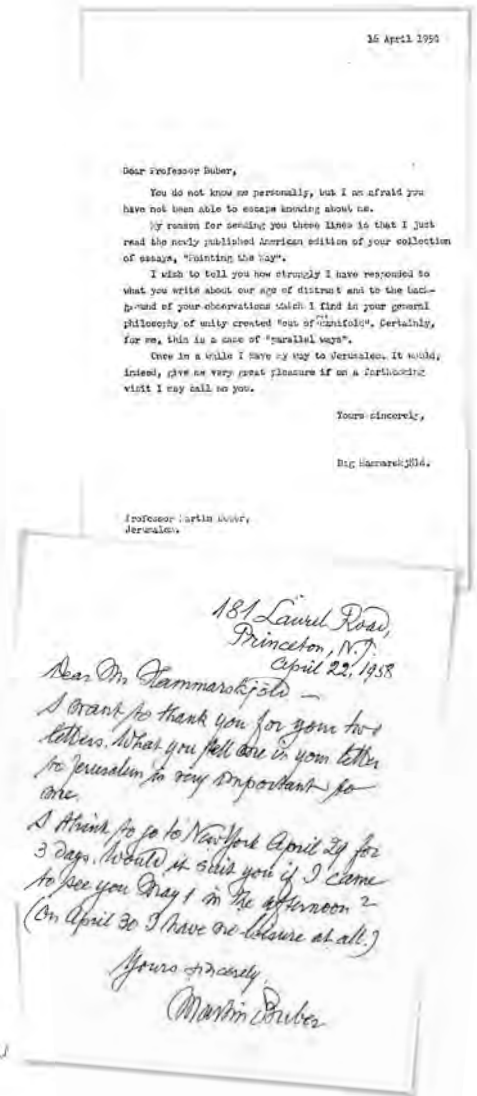 16 April 1958
Dear Professor Buber,
You do not know me personally, but I am afraid you
have not been able to escape knowing about me.
My reason for sending you these lines is that I just
read the newly published American edition of your collection
of essays, "Pointing the Way".
I wish to tell you how strongly I have responded to
what you write about our age of distrust and to the back-
ground of your observations which I find in your general
philosophy of unity created "out of the manifold". Certainly,
for me, this is a case of "parallel ways".
Once in a while I have my way to Jerusalem. It would,
indeed, give me very great pleasure if on a forthcoming
visit I may call on you.
Yours sincerely,
Dag Hammarskjöld.
Professor Martin Buber,
Jerusalem.
181 Laurel Road,
Princeton, N.J.
April 22, 1958
Dear Mr Hammarskjöld —
I want to thank you for your two
letters. What you tell me in your letter
to Jerusalem is very important to
me.
I think to go to New York April 29 for
3 days. Would it suit you if I came
to see you May 1 in the afternoon?
(On April 30 I have no leisure at all.)
Yours sincerely,
Martin Buber